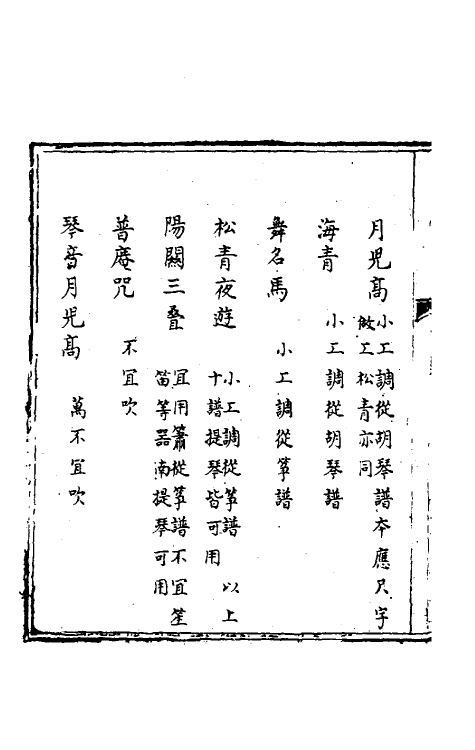 月児高 小工調從胡琴譜本應尺字
做工松青亦同
海青 小工調從胡琴譜
舞名馬 小工調從箏譜
松青夜遊 小工調從箏譜 以上
十譜提琴皆可用
陽關三疊 宜用簫從箏譜不宜笙
笛等器南提琴可用
普庵咒 不宜吹
琴音月児高 萬不宜吹